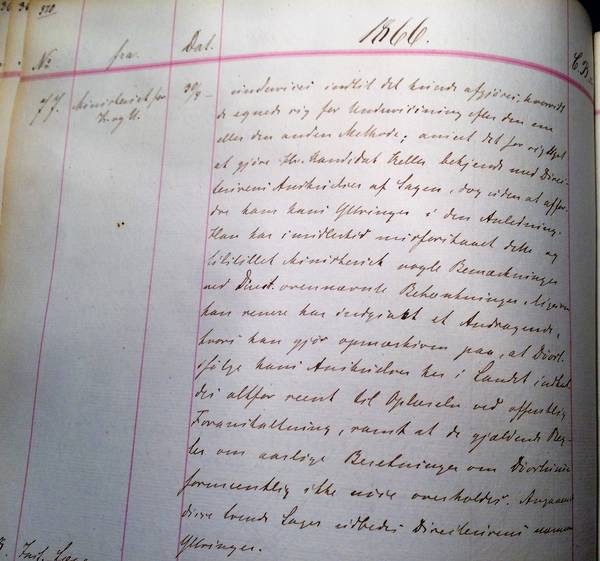 320
1866.
No fra Dat.
77. Ministeriet for 30/9 — undervises indtil det kunde afgjøres, hvorvidt
K. og U. de egnede sig for Underviisning efter den ene
eller den anden Methode; anseet det for rigtigst
at gjøre Hr. Kandidat Keller bekjendt med Direc-
teurens Anskuelser af Sagen, dog uden at affor-
dre ham hans Yttringer i den Anledning.
Han har imidlertid misforstaaet dette og
tilstillet Ministeriet nogle Bemærkninger
ved Direct. ovennævnte Betænkninger, ligesom
han senere har indgivet et Andragende,
hvori han gjør opmærksom paa, at Døvst.
ifølge hans Anskuelser her i Landet
des altfor seent til Oplærelse ved offentlig
Foranstaltning, samt at de gjældende Reg-
ler om aarlige Beretninger om Døvstumme
formeentlig ikke nøie overholdes. Angaaende
disse tvende Sager udbedes Directeurens
Yttringer.